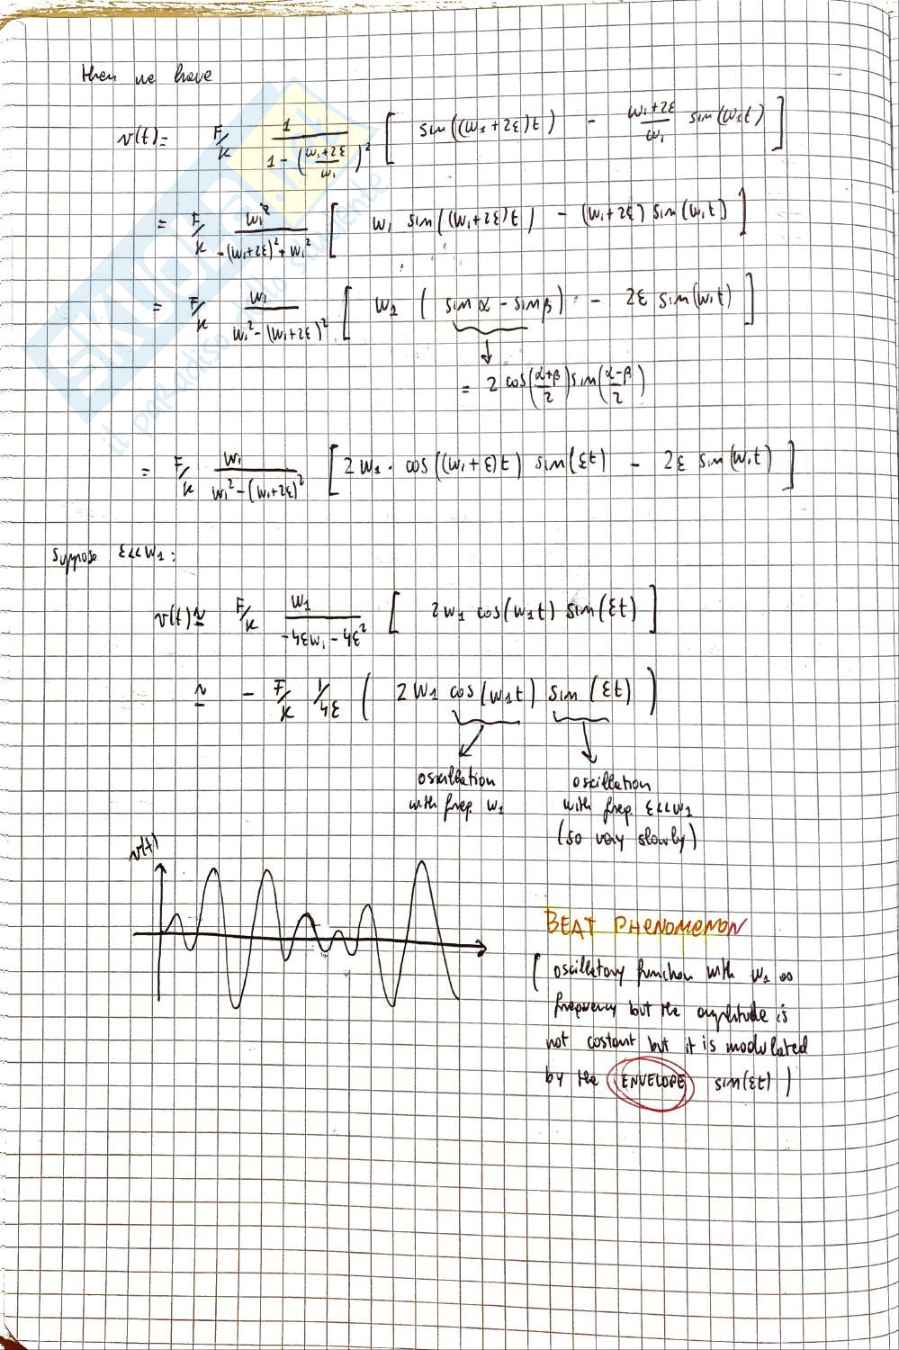 then we have
v(t)= F/K 1/(1-((ω₁+2ε)/ω₁)²) [ sin((ω₁+2ε)t) - (ω₁+2ε)/ω₁ sin(ω₁t) ]
= F/K ω₁²/(-(ω₁+2ε)²+ω₁²) [ ω₁ sin((ω₁+2ε)t) - (ω₁+2ε) sin(ω₁t) ]
= F/K ω₁/(ω₁²-(ω₁+2ε)²) [ ω₁ ( sinα - sinβ ) - 2ε sin(ω₁t) ]
= 2 cos((α+β)/2) sin((α-β)/2)
= F/K ω₁/(ω₁²-(ω₁+2ε)²) [ 2ω₁ · cos((ω₁+ε)t) sin(εt) - 2ε sin(ω₁t) ]
suppose ε<<ω₁:
v(t)≃ F/K ω₁/(-4εω₁-4ε²) [ 2ω₁ cos(ω₁t) sin(εt) ]
≃ - F/K 1/4ε ( 2ω₁ cos(ω₁t) sin(εt) )
oscillation
with freq. ω₁
oscillation
with freq. ε<<ω₁
(so very slowly)
v(t)
BEAT PHENOMENON
( oscillatory function with ω₁ as
frequency but the amplitude is
not costant but it is modulated
by the ENVELOPE sin(εt) )
SKUOLA
il paradiso dello studente